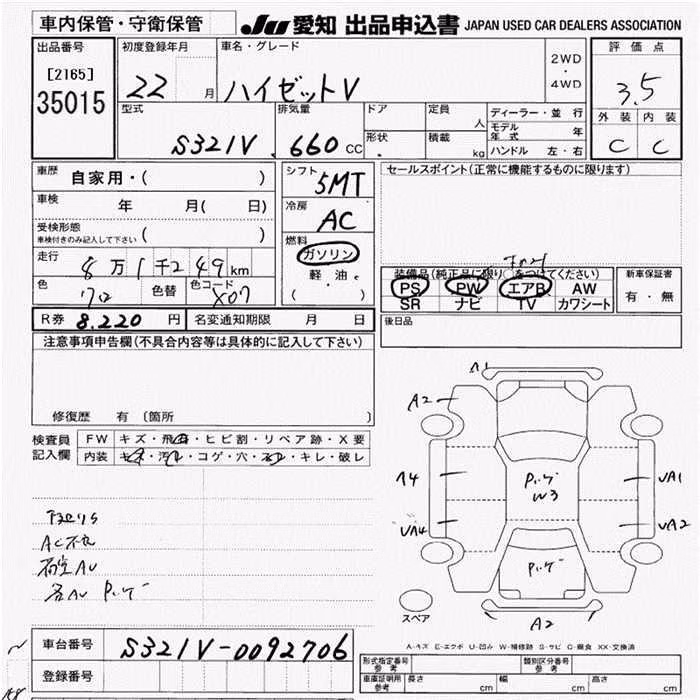 車内保管・守衛保管
JU 愛知 出品申込書 JAPAN USED CAR DEALERS ASSOCIATION
出品番号
[2165]
35015
初度登録年月
22 月
車名・グレード
ハイゼットV
2WD
・
4WD
評価点
3.5
外装 内装
C C
型式
S321V
排気量
660 CC
ドア
形状
定員
人
積載
kg
ディーラー・並 行
モデル年式 年
ハンドル 左・右
車歴
自家用・( )
車検
年 月( 日)
受検形態
車検付きのみ記入して下さい ( )
走行
8万1千249km
色
色替
色コード
X07
シフト
5MT
冷房
AC
燃料
ガソリン
軽・油
( )
セールスポイント(正常に機能するものに限ります)
装備品(純正品に限り○をつけてください)
PS PW エアB AW
SR ナビ TV カワシート
新車保証書
有・無
R券 8.220 円 名変通知期限 月 日
後日品
注意事項申告欄(不具合内容等は具体的に記入して下さい)
修復歴 有 〔箇所 〕
検査員
記入欄
FW キズ・飛石・ヒビ割・リペア跡・X要
内装 キズ・汚れ・コゲ・穴・スレ・キレ・破レ
AC不良
A1
A2
UA1
UA4
UA2
W3
A2
スペア
A-キズ E-エクボ U-凹み W-補修跡 S-サビ C-腐食 XX-交換済
車台番号 S321V-0092706
登録番号
形式指定番号
参考
類別区分番号
参考
車庫証明用
参考
長さ cm 幅 cm 高さ cm